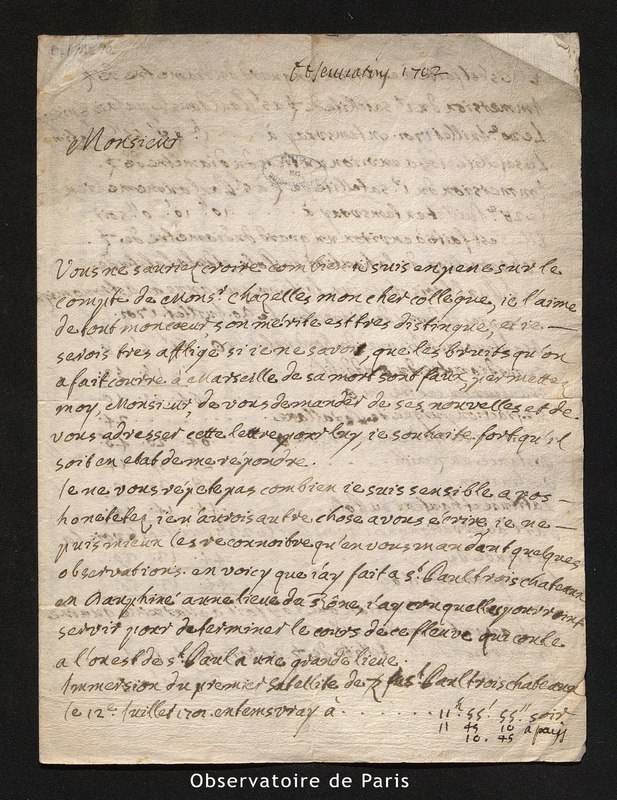 Observation 1702
Monsieur
Vous ne sauriez croire combien ie suis en pene sur le
compte de Mons.r chazelles mon cher collegue, ie l'aime
de tout mon cœur son mérite est tres distingué, et ie —
serois tres affligé si ie ne savois, que les bruits qu'on
a fait courre à Marseille de sa mort sont faux, permettez
moy, Monsieur, de vous demander de ses nouvelles et de
vous adresser cette lettre pour luy, ie souhaite fort qu'il
soit en etat de me répondre.
Je ne vous répete pas combien ie suis sensible a vos —
honetetez, ie n'aurois autre chose a vous ecrire, ie ne —
puis mieux les reconnoitre qu'en vous mandant quelques
observations. en voicy que i'ay fait a S.t Paul trois chateaux
en Dauphiné a une lieue du Rône, i'ay cru qu'elles pourroint
servir pour determiner le cours de ce fleuve qui coule
a l'ouest de S.t Paul a une grande lieue.
Immersion du premier satellite de ♃ a S.t Paul trois chateaux
le 12.e Juillet 1702. en tems vray à . . . . . . . 11.h 55.' 55." soir
11 45 10 à paris
10. 45
Observatoire de Paris